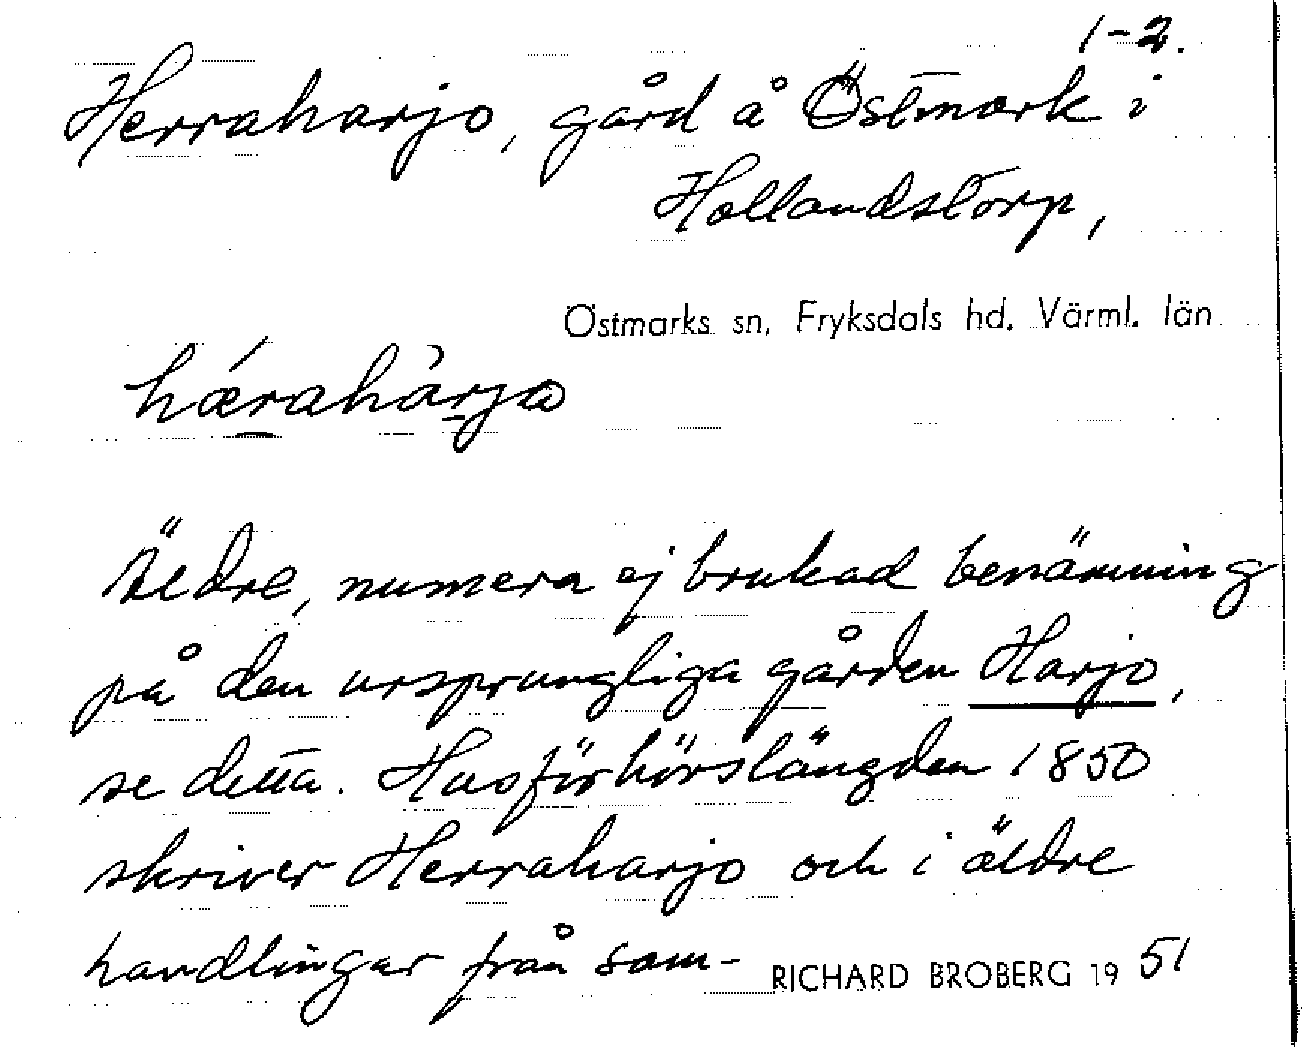 1-2.
Herraharjo, gård å Östmark i
Hollandstorp,
Östmarks sn, Fryksdals hd. Värml. län
hǽrahàrjo
Äldre, numera ej brukad benämning
på den ursprungliga gården Harjo,
se detta. Husförhörslängden 1850
skriver Herraharjo och i äldre
handlingar från sam-
RICHARD BROBERG 1951